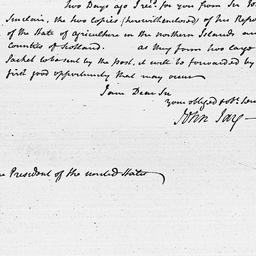 Two Days ago I rec.d for you from Sir Jo
Sinclair, the two copies (herewith enclosed) of his Repor
of the State of agriculture in the northern Islands an
counties of Scotland. As they form two large
Packets to be sent by the post, it will be forwarded by
first good opportunity that may occur
I am Dear Sir
your obliged & ob.t ser
John Jay—
e President of the United States